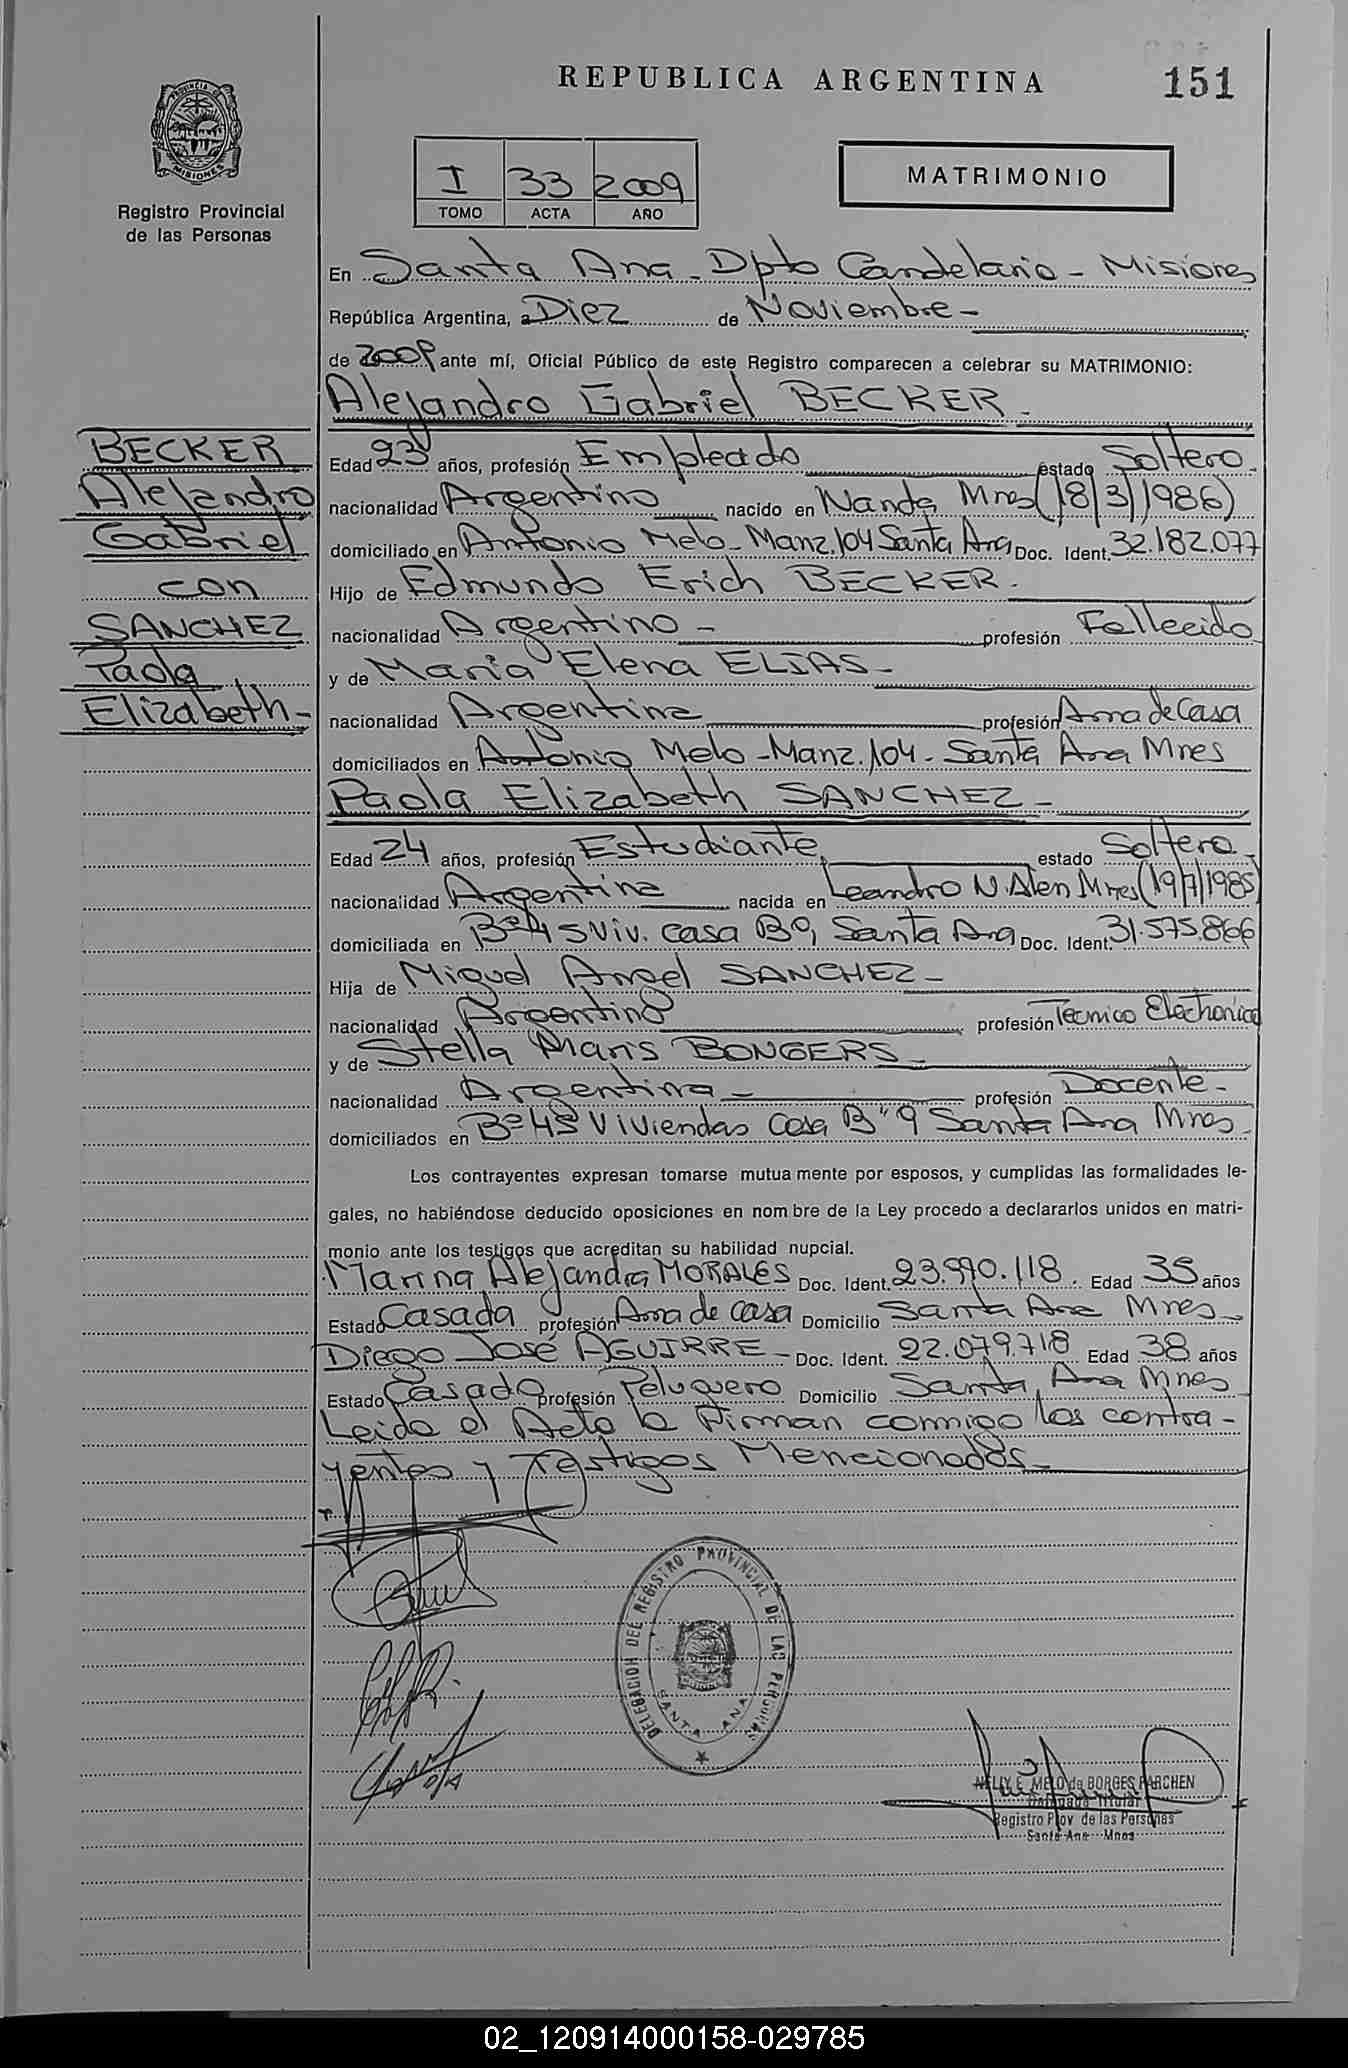 REPUBLICA ARGENTINA
151
PROVINCIA DE
MISIONES
Registro Provincial
de las Personas
I 33 2009
TOMO ACTA AÑO
MATRIMONIO
En Santa Ana - Dpto Candelaria - Misiones
República Argentina, a Diez de Noviembre -
de 2009 ante mí, Oficial Público de este Registro comparecen a celebrar su MATRIMONIO:
Alejandro Gabriel BECKER -
BECKER
Alejandro
Gabriel
con
SANCHEZ
Paola
Elizabeth -
Edad 23 años, profesión Empleado estado Soltero -
nacionalidad Argentino nacido en Mnes (18/3/1986)
domiciliado en Antonio Melo - Manz. 104 Santa Ana Doc. Ident. 32.182.077
Hijo de Edmundo Erich BECKER -
nacionalidad Argentino - profesión Fallecido
y de Maria Elena ELIAS -
nacionalidad Argentina profesión Ama de Casa
domiciliados en Antonio Melo - Manz. 104 - Santa Ana Mnes
Paola Elizabeth SANCHEZ -
Edad 24 años, profesión Estudiante estado Soltera -
nacionalidad Argentina nacida en Leandro N. Alen Mnes (19/7/1985)
domiciliada en Bº 45 Viv. casa B9, Santa Ana Doc. Ident. 31.575.866
Hija de Miguel Angel SANCHEZ -
nacionalidad Argentino profesión Tecnico Electronico
y de Stella Maris BONGERS -
nacionalidad Argentina - profesión Docente -
domiciliados en Bº 45 Viviendas Casa B" 9 Santa Ana Mnes -
Los contrayentes expresan tomarse mutua mente por esposos, y cumplidas las formalidades le-
gales, no habiéndose deducido oposiciones en nom bre de la Ley procedo a declararlos unidos en matri-
monio ante los testigos que acreditan su habilidad nupcial.
Marina Alejandra MORALES Doc. Ident. 23.990.118. Edad 35 años
Estado Casada profesión Ama de casa Domicilio Santa Ana Mnes -
Diego José AGUIRRE - Doc. Ident. 22.079.718 Edad 38 años
Estado Casado profesión Peluquero Domicilio Santa Ana Mnes
Leida el Acta la Firman conmigo los contra-
yentes y Testigos Mencionados -
DELEGACION DEL REGISTRO PROVINCIAL DE LAS PERSONAS
SANTA ANA
NELLY E. MELO de BORGES PARCHEN
Delegada Titular
Registro Prov de las Personas
Santa Ana - Mnes
02_120914000158-029785